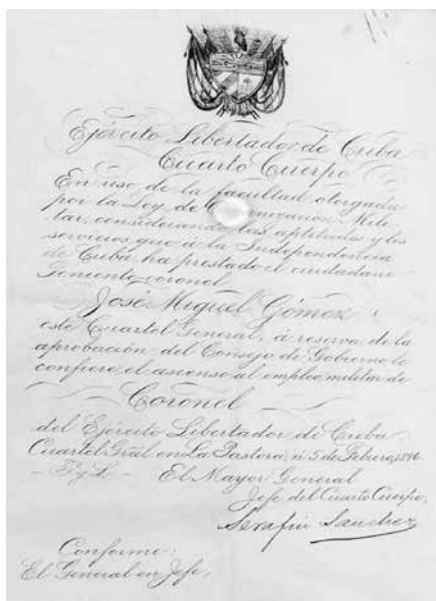 Ejército Libertador de Cuba
Cuarto Cuerpo
En uso de la facultad otorgada
por la Ley de Organización Mili-
tar, considerando las aptitudes y los
servicios que á la Independencia
de Cuba ha prestado el ciudadano
Teniente coronel
José Miguel Gómez
este Cuartel General, á reserva de la
aprobación del Consejo de Gobierno le
confiere el ascenso al empleo militar de
Coronel
del Ejército Libertador de Cuba.
Cuartel Gral en La Pastora, á 5 de Febrero, 1896
P. y L. El Mayor General
Jefe del Cuarto Cuerpo,
Serafin Sanchez
Conforme:
El General en Jefe,